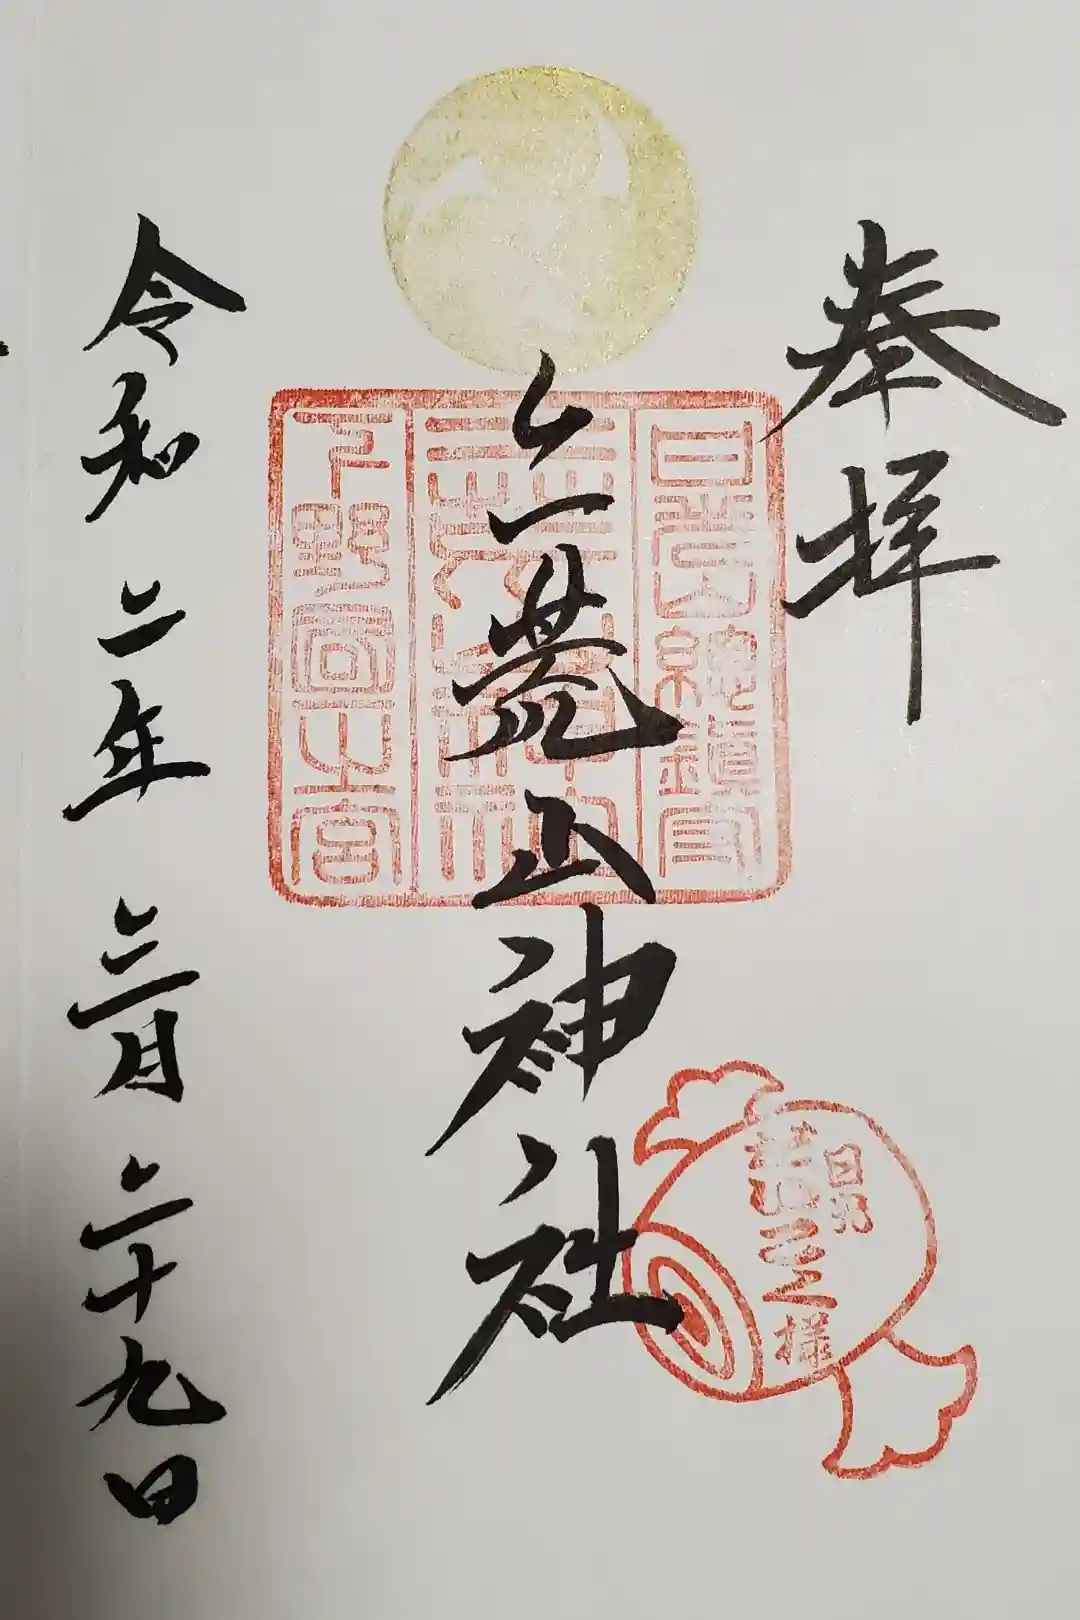 奉拝
日光山總鎮守
二荒山神社
下野國一之宮
二荒山神社
日光
様
令和二年三月二十九日